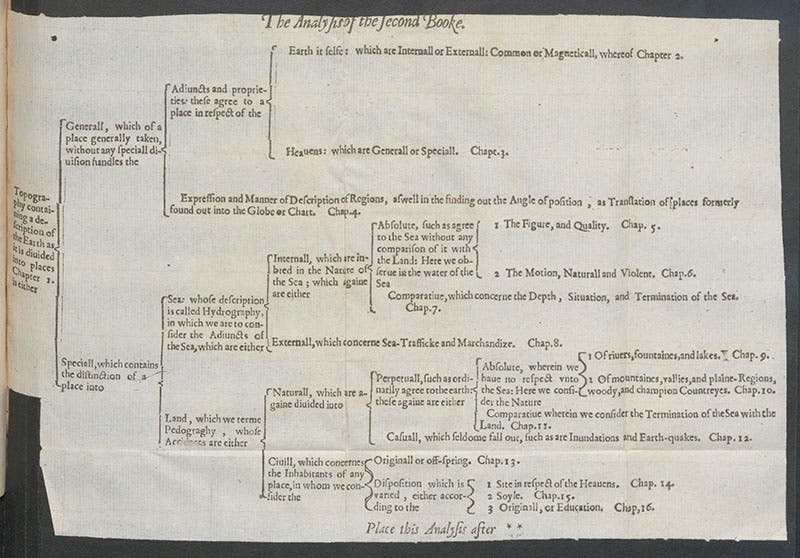 The Analysis of the Second Booke.
Earth it selfe: which are Internall or Externall: Common or Magneticall, whereof Chapter 2.
Adiuncts and proprie-
ties: these agree to a
place in respect of the
Heauens: which are Generall or Speciall. Chapt. 3.
Generall, which of a
place generally taken,
without any speciall di-
uision handles the
Expression and Manner of Description of Regions, aswell in the finding out the Angle of position, as Translation of places formerly
found out into the Globe or Chart. Chap. 4.
Topogra-
phy contai-
ning a de-
scription of
the Earth as
it is diuided
into places
Chapter 1.
is either
Absolute, such as agree
to the Sea without any
comparison of it with
the Land: Here we ob-
serue in the water of the
Sea
1 The Figure, and Quality. Chap. 5.
2 The Motion, Naturall and Violent. Chap. 6.
Internall, which are in-
bred in the Nature of
the Sea; which againe
are either
Comparatiue, which concerne the Depth, Situation, and Termination of the Sea.
Chap. 7.
Sea: whose description
is called Hydrography,
in which we are to con-
sider the Adiuncts of
the Sea, which are either
Externall, which concerne Sea-Trafficke and Marchandize. Chap. 8.
Speciall, which contains
the distinction of a
place into
Land, which we terme
Pedography, whose
Accidents are either
Naturall, which are a-
gaine diuided into
Perpetuall, such as ordi-
narily agree to the earth:
these againe are either
Absolute, wherein we
haue no respect vnto
the Sea: Here we consi-
der the Nature
1 Of riuers, fountaines, and lakes. Chap. 9.
2 Of mountaines, vallies, and plaine-Regions,
woody, and champion Countreyes. Chap. 10.
Comparatiue wherein we consider the Termination of the Sea with the
Land. Chap. 11.
Casuall, which seldome fall out, such as are Inundations and Earth-quakes. Chap. 12.
Ciuill, which concernes
the Inhabitants of any
place, in whom we con-
sider the
Originall or off-spring. Chap. 13.
Disposition which is
varied, either accor-
ding to the
1 Site in respect of the Heauens. Chap. 14.
2 Soyle. Chap. 15.
3 Originall, or Education. Chap, 16.
Place this Analysis after * *